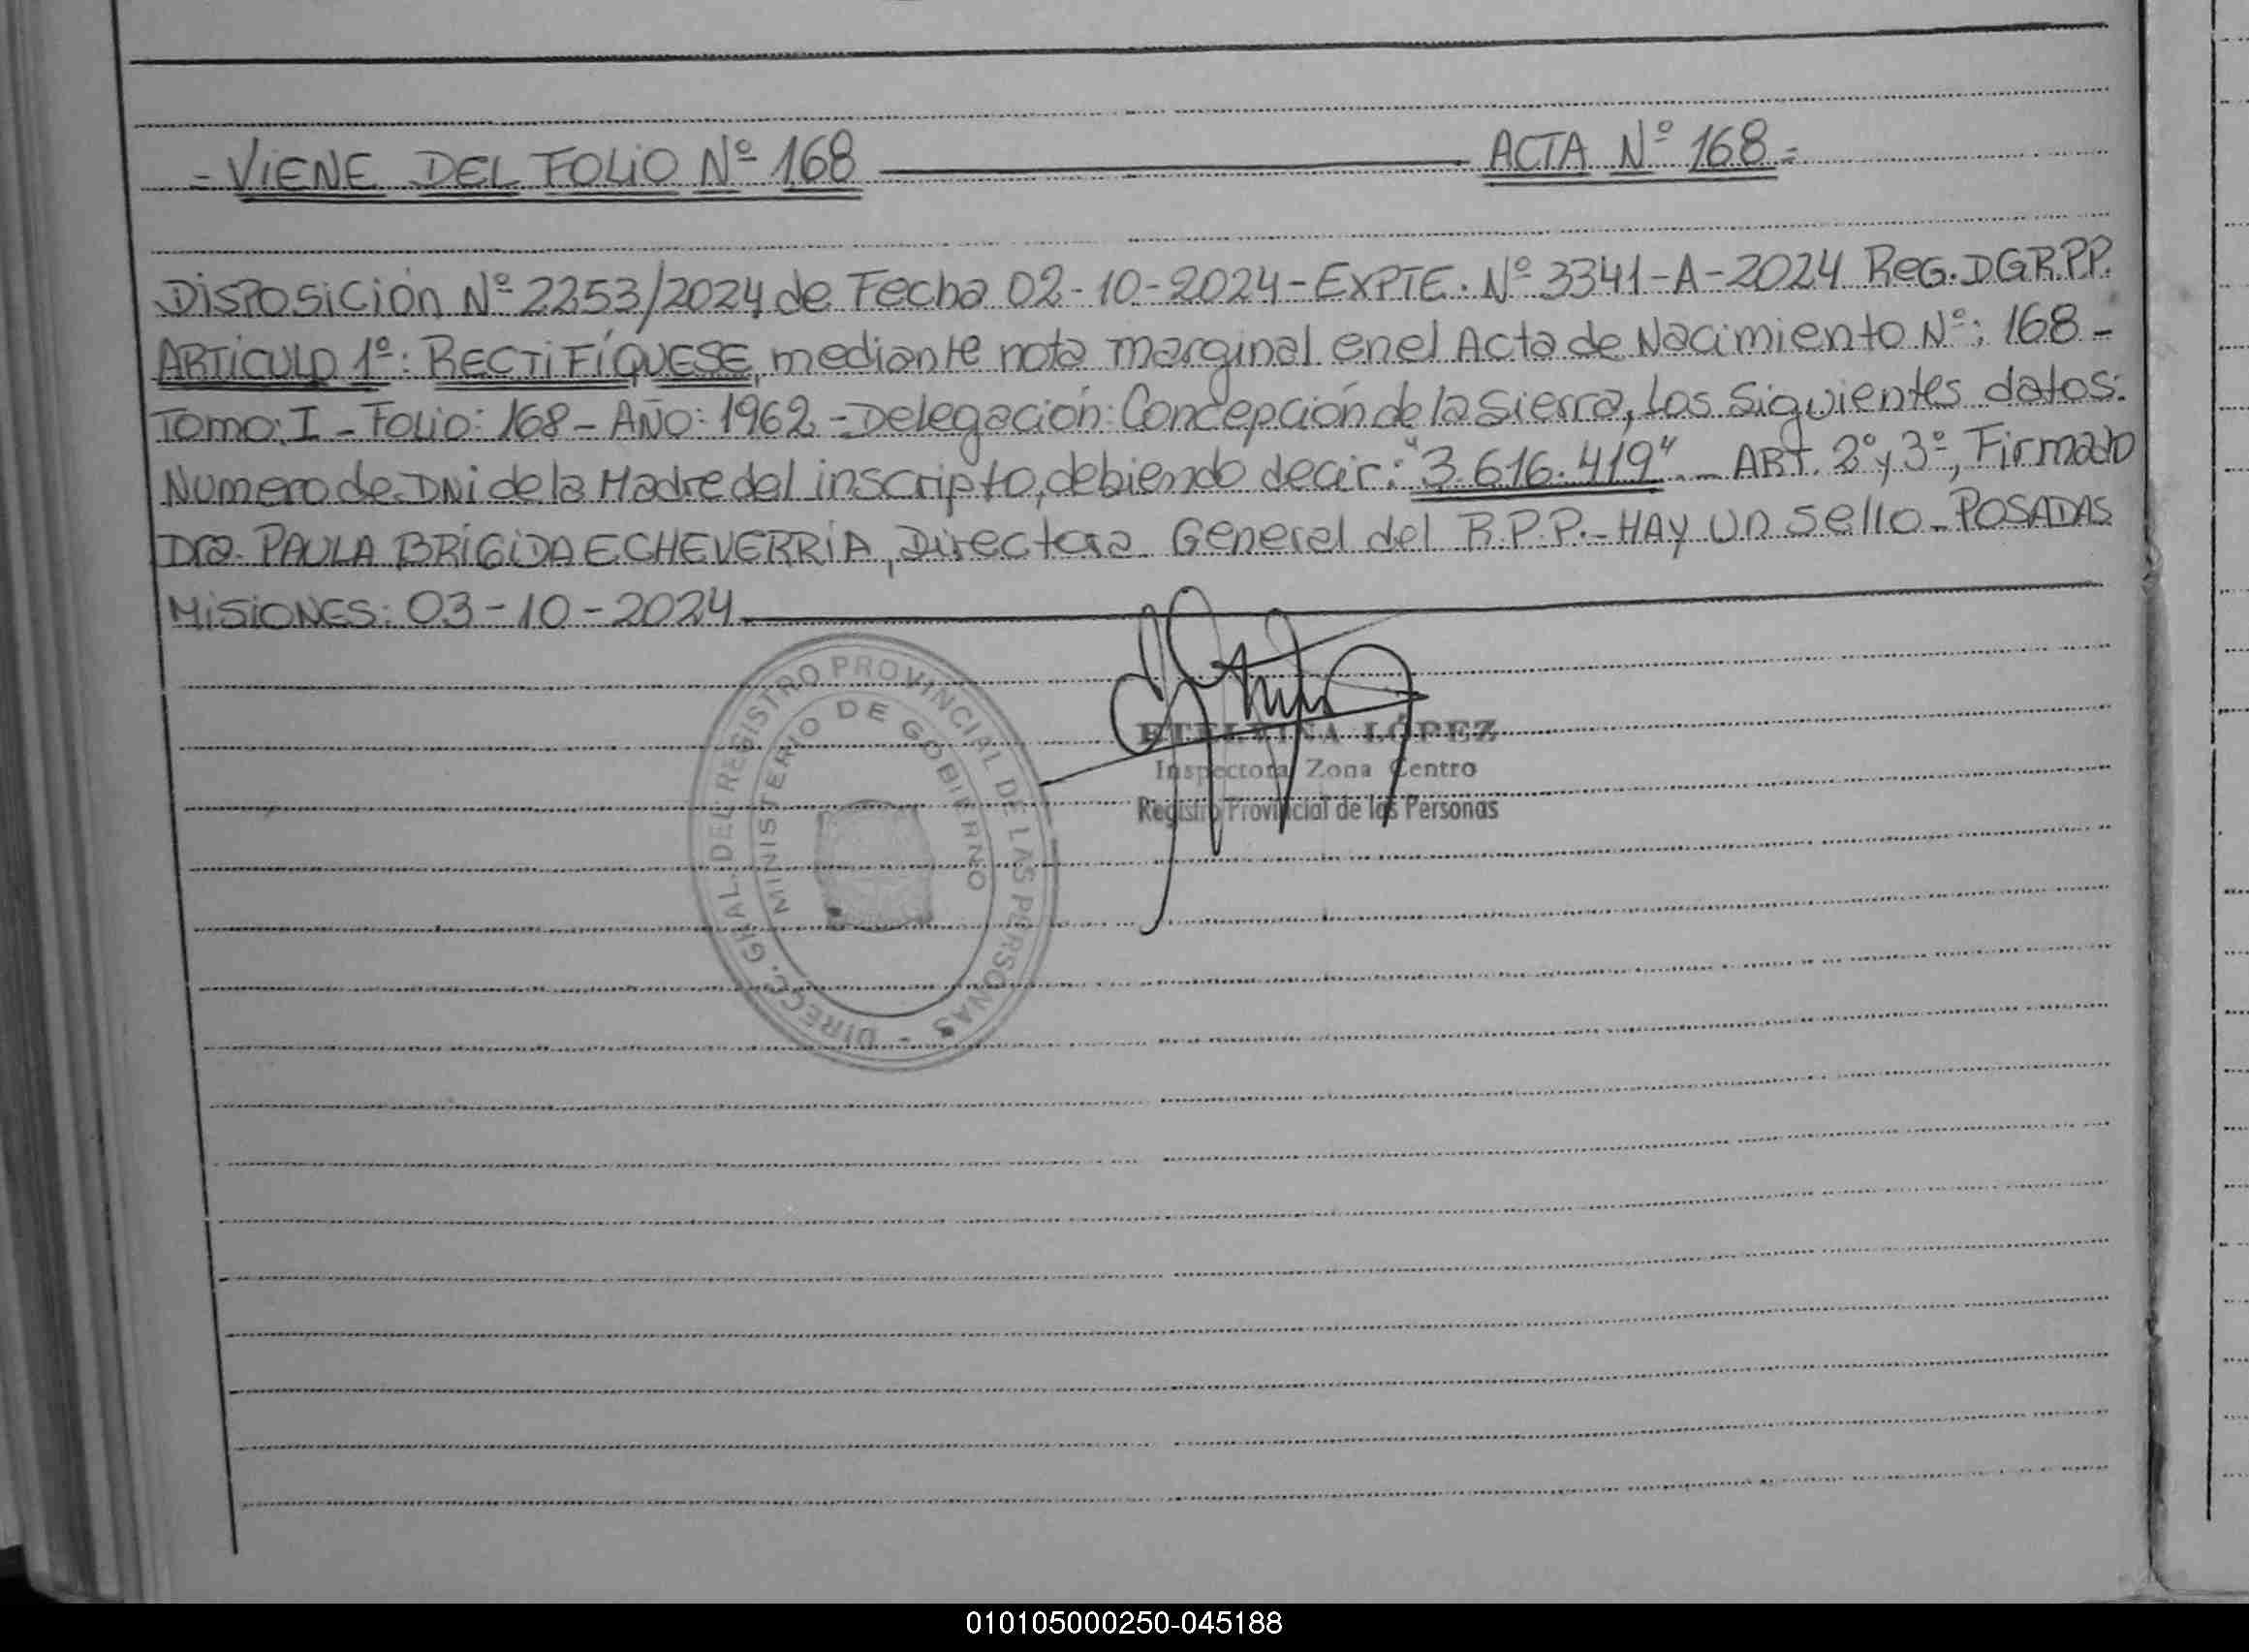 = VIENE DEL FOLIO Nº 168 ACTA Nº 168 =
DISPOSICIÓN Nº 2253/2024 de Fecha 02-10-2024-EXPTE. Nº 3341-A-2024 REG. DGR.P.P.
ARTICULO 1º: RECTIFÍQUESE, mediante nota marginal en el Acta de Nacimiento Nº: 168 -
TOMO: I - FOLIO: 168 - AÑO: 1962 - Delegación: Concepción de la Sierra, Los Siguientes datos:
Numero de DNi de la Madre del inscripto, debiendo decir: "3.616.419" - ART. 2º y 3º, Firmado
Dra. PAULA BRÍGIDA ECHEVERRÍA, Directora General del R.P.P. - HAY UN Sello - POSADAS
MISIONES: 03-10-2024
DIRECC. GRAL. DEL REGISTRO PROVINCIAL DE LAS PERSONAS -
MINISTERIO DE GOBIERNO
ETELVINA LÓPEZ
Inspectora Zona Centro
Registro Provincial de las Personas
010105000250-045188